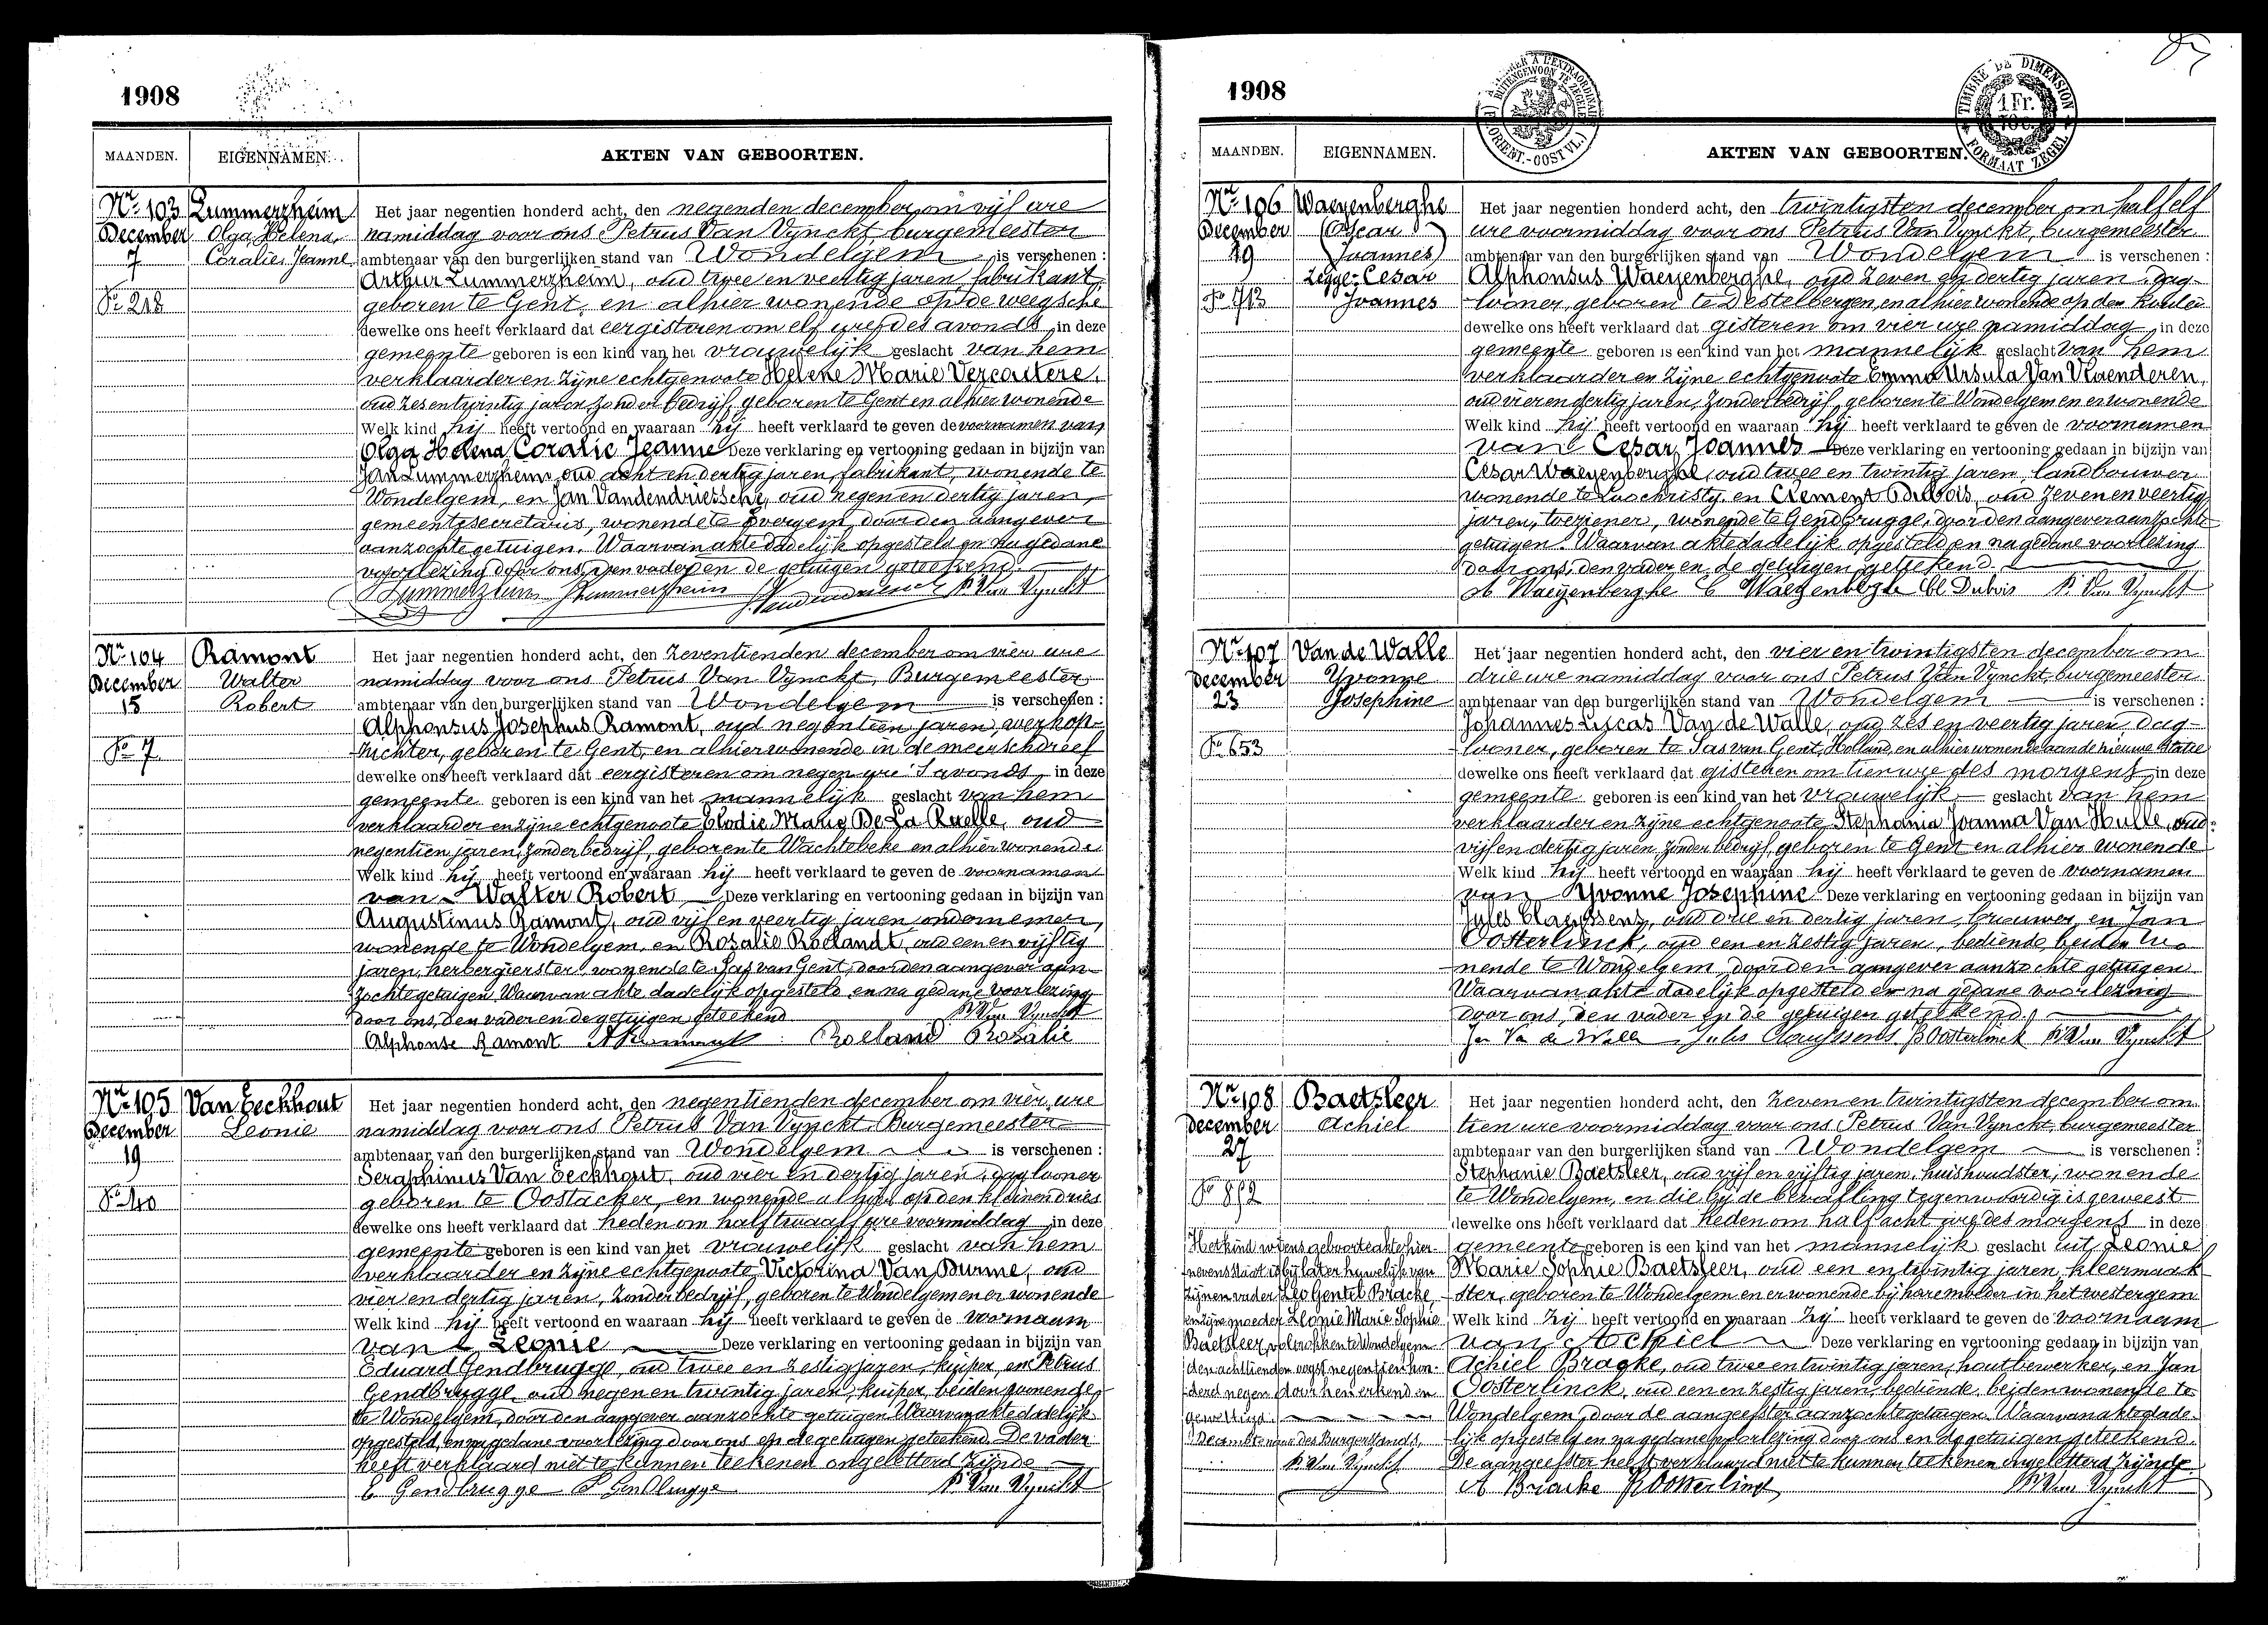 1908
MAANDEN. EIGENNAMEN. AKTEN VAN GEBOORTEN.
Nr 103 Lummerzheim Het jaar negentien honderd acht, den negenden december, om vijf ure
December Olga Helena namiddag voor ons Petrus Van Vynckt, burgemeester
7 Coralie Jeanne ambtenaar van den burgerlijken stand van Wondelgem is verschenen :
Arthur Lummerzheim, oud twee en veertig jaren, fabrikant,
Fo 218 geboren te Gent, en alhier wonende op de weegsche
dewelke ons heeft verklaard dat eergisteren om elf ure des avonds in deze
gemeente geboren is een kind van het vrouwelijk geslacht van hem
verklaarder en zijne echtgenoote Helene Marie Vercoutere,
oud zesentwintig jaren, zonder bedrijf, geboren te Gent en alhier wonende
Welk kind hij heeft vertoond en waaraan hij heeft verklaard te geven de voornamen van
Olga Helena Coralie Jeanne Deze verklaring en vertooning gedaan in bijzijn van
Jan Lummerzheim, oud acht en dertig jaren, fabrikant, wonende te
Wondelgem, en Jan Vandendriessche, oud negen en dertig jaren,
gemeentesecretaris, wonende te Evergem, door den aangever
aanzochte getuigen. Waarvan akte dadelijk opgesteld en na gedane
voorlezing door ons, den vader en de getuigen geteekend.
Lummerzheim JLummerzheim P. Van Vynckt
Nr 104 Ramont Het jaar negentien honderd acht, den zeventienden december om vier ure
December Walter namiddag voor ons Petrus Van Vynckt, Burgemeester,
15 Robert ambtenaar van den burgerlijken stand van Wondelgem is verschenen :
Alphonsus Josephus Ramont, oud negentien jaren, werkop-
Fo 7 zichter, geboren te Gent, en alhier wonende in de meerschdreef
dewelke ons heeft verklaard dat eergisteren om negen ure 's avonds, in deze
gemeente geboren is een kind van het mannelijk geslacht van hem
verklaarder en zijne echtgenoote Elodie Marie De La Ruelle, oud
negentien jaren, zonder bedrijf, geboren te Wachtebeke en alhier wonende
Welk kind hij heeft vertoond en waaraan hij heeft verklaard te geven de voornamen
van Walter Robert Deze verklaring en vertooning gedaan in bijzijn van
Augustinus Ramont, oud vijf en veertig jaren, ondernemer,
wonende te Wondelgem, en Rosalie Roelandt, oud een en vijftig
jaren, herbergierster, wonende te Sas van Gent, door den aangever aan-
zochte getuigen. Waarvan akte dadelijk opgesteld en na gedane voorlezing
door ons, den vader en de getuigen geteekend P. Van Vynckt
Alphonse Ramont A Ramont Roeland Rosalie
Nr 105 Van Eeckhout Het jaar negentien honderd acht, den negentienden december om vier ure
December Leonie namiddag voor ons Petrus Van Vynckt, Burgemeester
19 ambtenaar van den burgerlijken stand van Wondelgem is verschenen :
Seraphinus Van Eeckhout, oud vier en dertig jaren, daglooner
Fo 40 geboren te Oostacker, en wonende alhier op den kleinen dries
dewelke ons heeft verklaard dat heden om half twaalf ure voormiddag in deze
gemeente geboren is een kind van het vrouwelijk geslacht van hem
verklaarder en zijne echtgenoote Victorina Van Durme, oud
vier en dertig jaren, zonder bedrijf, geboren te Wondelgem en er wonende
Welk kind hij heeft vertoond en waaraan hij heeft verklaard te geven de voornaam
van Leonie Deze verklaring en vertooning gedaan in bijzijn van
Eduard Gendbrugge, oud twee en zestig jaren, kuiper, en Petrus
Gendbrugge, oud negen en twintig jaren, kuiper, beiden wonende
te Wondelgem, door den aangever aanzochte getuigen. Waarvan akte dadelijk
opgesteld, en na gedane voorlezing door ons en de getuigen geteekend. De vader
heeft verklaard niet te kunnen teekenen ongeletterd zijnde
E Gendbrugge P Gendbrugge P. Van Vynckt
1908
TIMBRE DE DIMENSION
1 Fr.
FORMAAT ZEGEL
MAANDEN. EIGENNAMEN. AKTEN VAN GEBOORTEN.
Nr 106 Waeyenberghe Het jaar negentien honderd acht, den twintigsten december om half elf
December (Oscar ure voormiddag voor ons Petrus Van Vynckt, burgemeester
19 Joannes) ambtenaar van den burgerlijken stand van Wondelgem is verschenen :
Zegge: Cesar Alphonsus Waeyenberghe, oud zeven en dertig jaren, dag-
Fo 713 Joannes looner, geboren te Destelbergen, en alhier wonende op den
dewelke ons heeft verklaard dat gisteren om vier ure namiddag in deze
gemeente geboren is een kind van het mannelijk geslacht van hem
verklaarder en zijne echtgenoote Emma Ursula Van Vlaenderen,
oud vier en dertig jaren, zonder bedrijf, geboren te Wondelgem en er wonende
Welk kind hij heeft vertoond en waaraan hij heeft verklaard te geven de voornamen
van Cesar Joannes Deze verklaring en vertooning gedaan in bijzijn van
Cesar Waeyenberghe, oud twee en twintig jaren, landbouwer,
wonende te Loochristy, en Clement Dubois, oud zeven en veertig
jaren, toeziener, wonende te Gendbrugge, door den aangever aanzochte
getuigen. Waarvan akte dadelijk opgesteld en na gedane voorlezing
door ons, den vader en de getuigen geteekend.
A Waeyenberghe C Waeyenberghe Cl Dubois P. Van Vynckt
Nr 107 Van de Walle Het jaar negentien honderd acht, den vier en twintigsten december om
December Yvonne drie ure namiddag voor ons Petrus Van Vynckt, burgemeester
23 Josephine ambtenaar van den burgerlijken stand van Wondelgem is verschenen :
Johannes Lucas Van de Walle, oud zes en veertig jaren, dag-
Fo 653 looner, geboren te Sas van Gent, Holland, en alhier wonende aan de nieuwe statie
dewelke ons heeft verklaard dat gisteren om tien ure des morgens in deze
gemeente geboren is een kind van het vrouwelijk geslacht van hem
verklaarder en zijne echtgenoote Stephania Joanna Van Hulle, oud
vijf en dertig jaren, zonder bedrijf, geboren te Gent en alhier wonende
Welk kind hij heeft vertoond en waaraan hij heeft verklaard te geven de voornamen
van Yvonne Josephine Deze verklaring en vertooning gedaan in bijzijn van
Jules Claeyssens, oud drie en dertig jaren, brouwer, en Jan
Oosterlinck, oud een en zestig jaren, bediende, beiden wo-
nende te Wondelgem, door den aangever aanzochte getuigen
Waarvan akte dadelijk opgesteld en na gedane voorlezing
door ons, den vader en de getuigen geteekend.
Jan Van de Walle Jules Claeyssens JBOosterlinck P. Van Vynckt
Nr 108 Baetsleer Het jaar negentien honderd acht, den zeven en twintigsten december om
December Achiel tien ure voormiddag voor ons Petrus Van Vynckt, burgemeester
27 ambtenaar van den burgerlijken stand van Wondelgem is verschenen :
Stephanie Baetsleer, oud vijf en vijftig jaren, huishoudster, wonende
Fo 812 te Wondelgem, en die bij de bevalling tegenwoordig is geweest
dewelke ons heeft verklaard dat heden om half acht ure des morgens in deze
Het kind wiens geboorteakte hier- gemeente geboren is een kind van het mannelijk geslacht uit Leonie
nevens staat is bij later huwelijk van Marie Sophie Baetsleer, oud een en twintig jaren, kleermaak-
zijnen vader Leo Gentil Bracke ster, geboren te Wondelgem en er wonende bij hare moeder in het westergem
en zijne moeder Leonie Marie Sophie Welk kind zij heeft vertoond en waaraan zij heeft verklaard te geven de voornaam
Baetsleer, voltrokken te Wondelgem van Achiel Deze verklaring en vertooning gedaan in bijzijn van
den achttienden oogst negentien hon- Achiel Bracke, oud twee en twintig jaren, houtbewerker, en Jan
derd negen door hen erkend en Oosterlinck, oud een en zestig jaren, bediende, beiden wonende te
gewettigd. Wondelgem, door de aangeefster aanzochte getuigen. Waarvan akte dade-
De ambtenaar des Burgerstands, lijk opgesteld en na gedane voorlezing door ons en de getuigen geteekend.
P. Van Vynckt De aangeefster heeft verklaard niet te kunnen teekenen ongeletterd zijnde.
A Bracke JBOosterlinck P. Van Vynckt